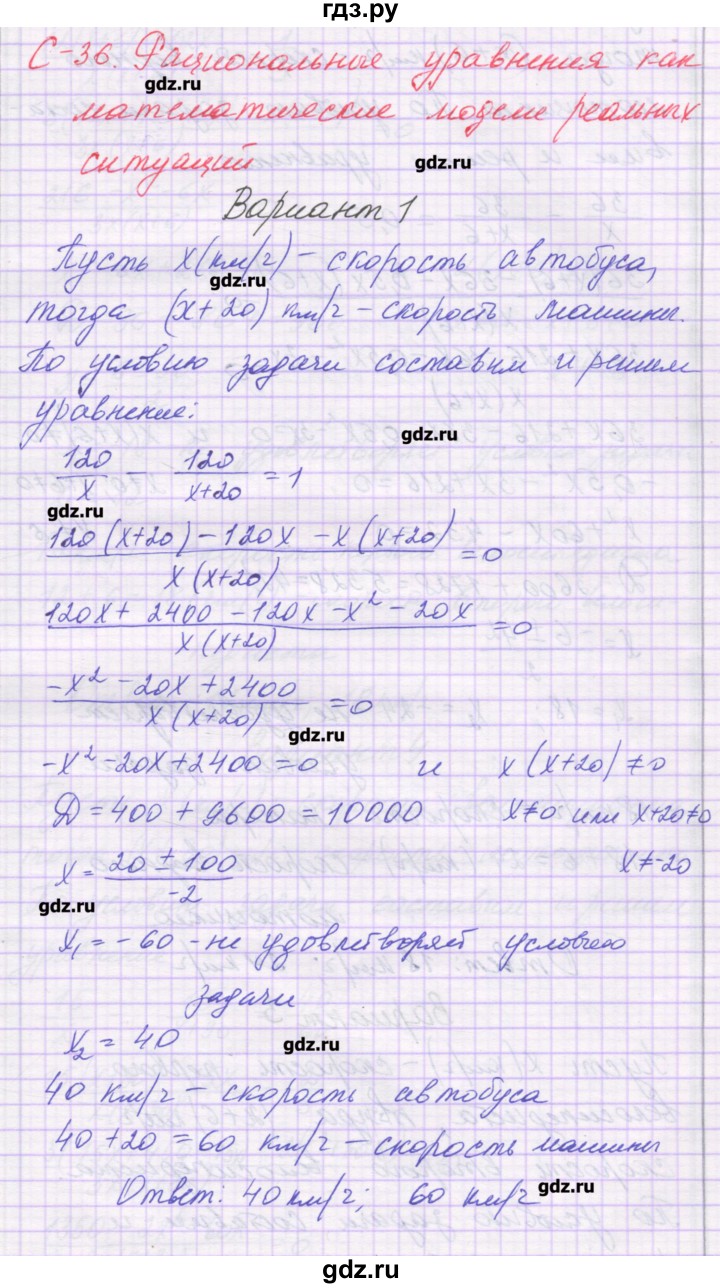 гдз.ру
С-36. Рациональные уравнения как
gdz.ru
математические модели реальных
ситуаций
gdz.ru
Вариант 1
Пусть x(км/г) – скорость автобуса,
gdz.ru
тогда (x+20) км/г – скорость машины.
По условию задачи составим и решим
уравнение:
gdz.ru
120/x – 120/(x+20) = 1
gdz.ru
(120(x+20) – 120x – x(x+20))/(x(x+20)) = 0
(120x + 2400 – 120x – x² – 20x)/(x(x+20)) = 0
(–x² – 20x + 2400)/(x(x+20)) = 0
gdz.ru
–x² – 20x + 2400 = 0 и x(x+20) ≠ 0
Д = 400 + 9600 = 10000 x≠0 или x+20≠0
x = (20 ± 100)/(–2) x≠-20
gdz.ru
x₁ = – 60 - не удовлетворяет условию
задачи
x₂ = 40
gdz.ru
40 км/г – скорость автобуса
40 + 20 = 60 км/г – скорость машины
Ответ: 40 км/г; 60 км/г
gdz.ru
gdz.ru